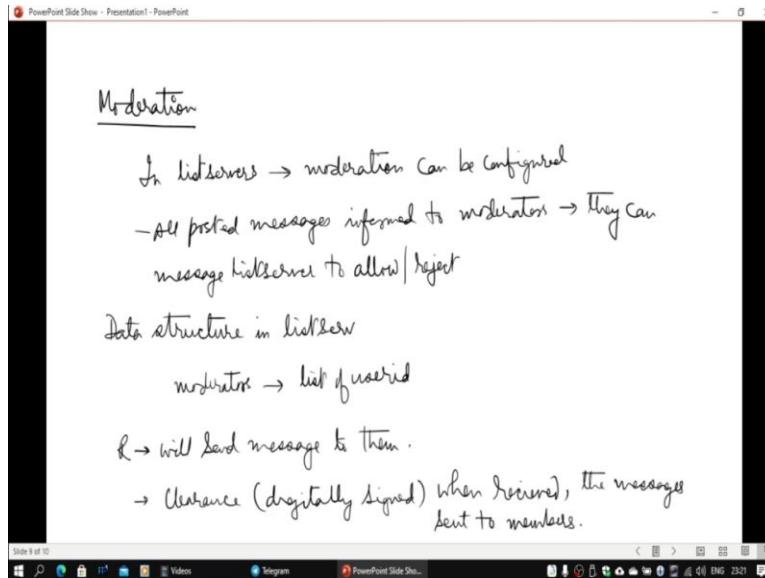 PowerPoint Slide Show - Presentation1 - PowerPoint
Moderation
In listservers → moderation can be configured
- All posted messages informed to moderators → they can
message listserver to allow/reject
Data structure in listserv
moderators → list of userid
R → will send message to them.
→ Clearance (digitally signed) when recieved, the messages
sent to members.
Slide 9 of 10
Videos Telegram PowerPoint Slide Sho... ENG 2321